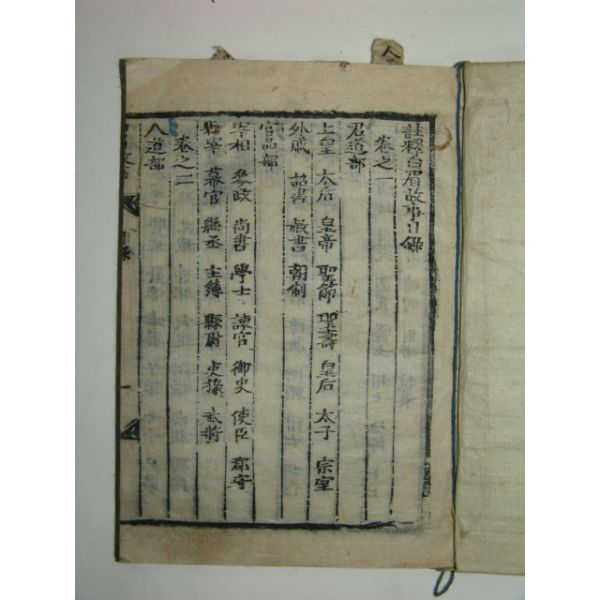 註釋白眉故事目錄
卷之一
君道部
上皇 太后 皇帝 聖節 聖壽 皇后 太子 宗室
外戚 詔書 赦書 朝制
官品部
宰相 參政 尚書 學士 諫官 御史 使臣 郡守
縣宰 幕官 縣丞 主簿 縣尉 吏掾 武將
卷之二
人道部
目錄
一
人